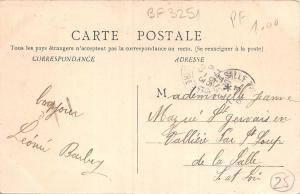 BF 3251
PF
1,00
CARTE POSTALE
Tous les pays étrangers n'acceptent pas la correspondance au recto. (Se renseigner à la poste)
CORRESPONDANCE
ADRESSE
SALLE
Mademoiselle Jeanne
bonjour
Mazué St Gervais en
Léonie Barbey
Vallière par St Loup
de la Salle
S. et Loire
25